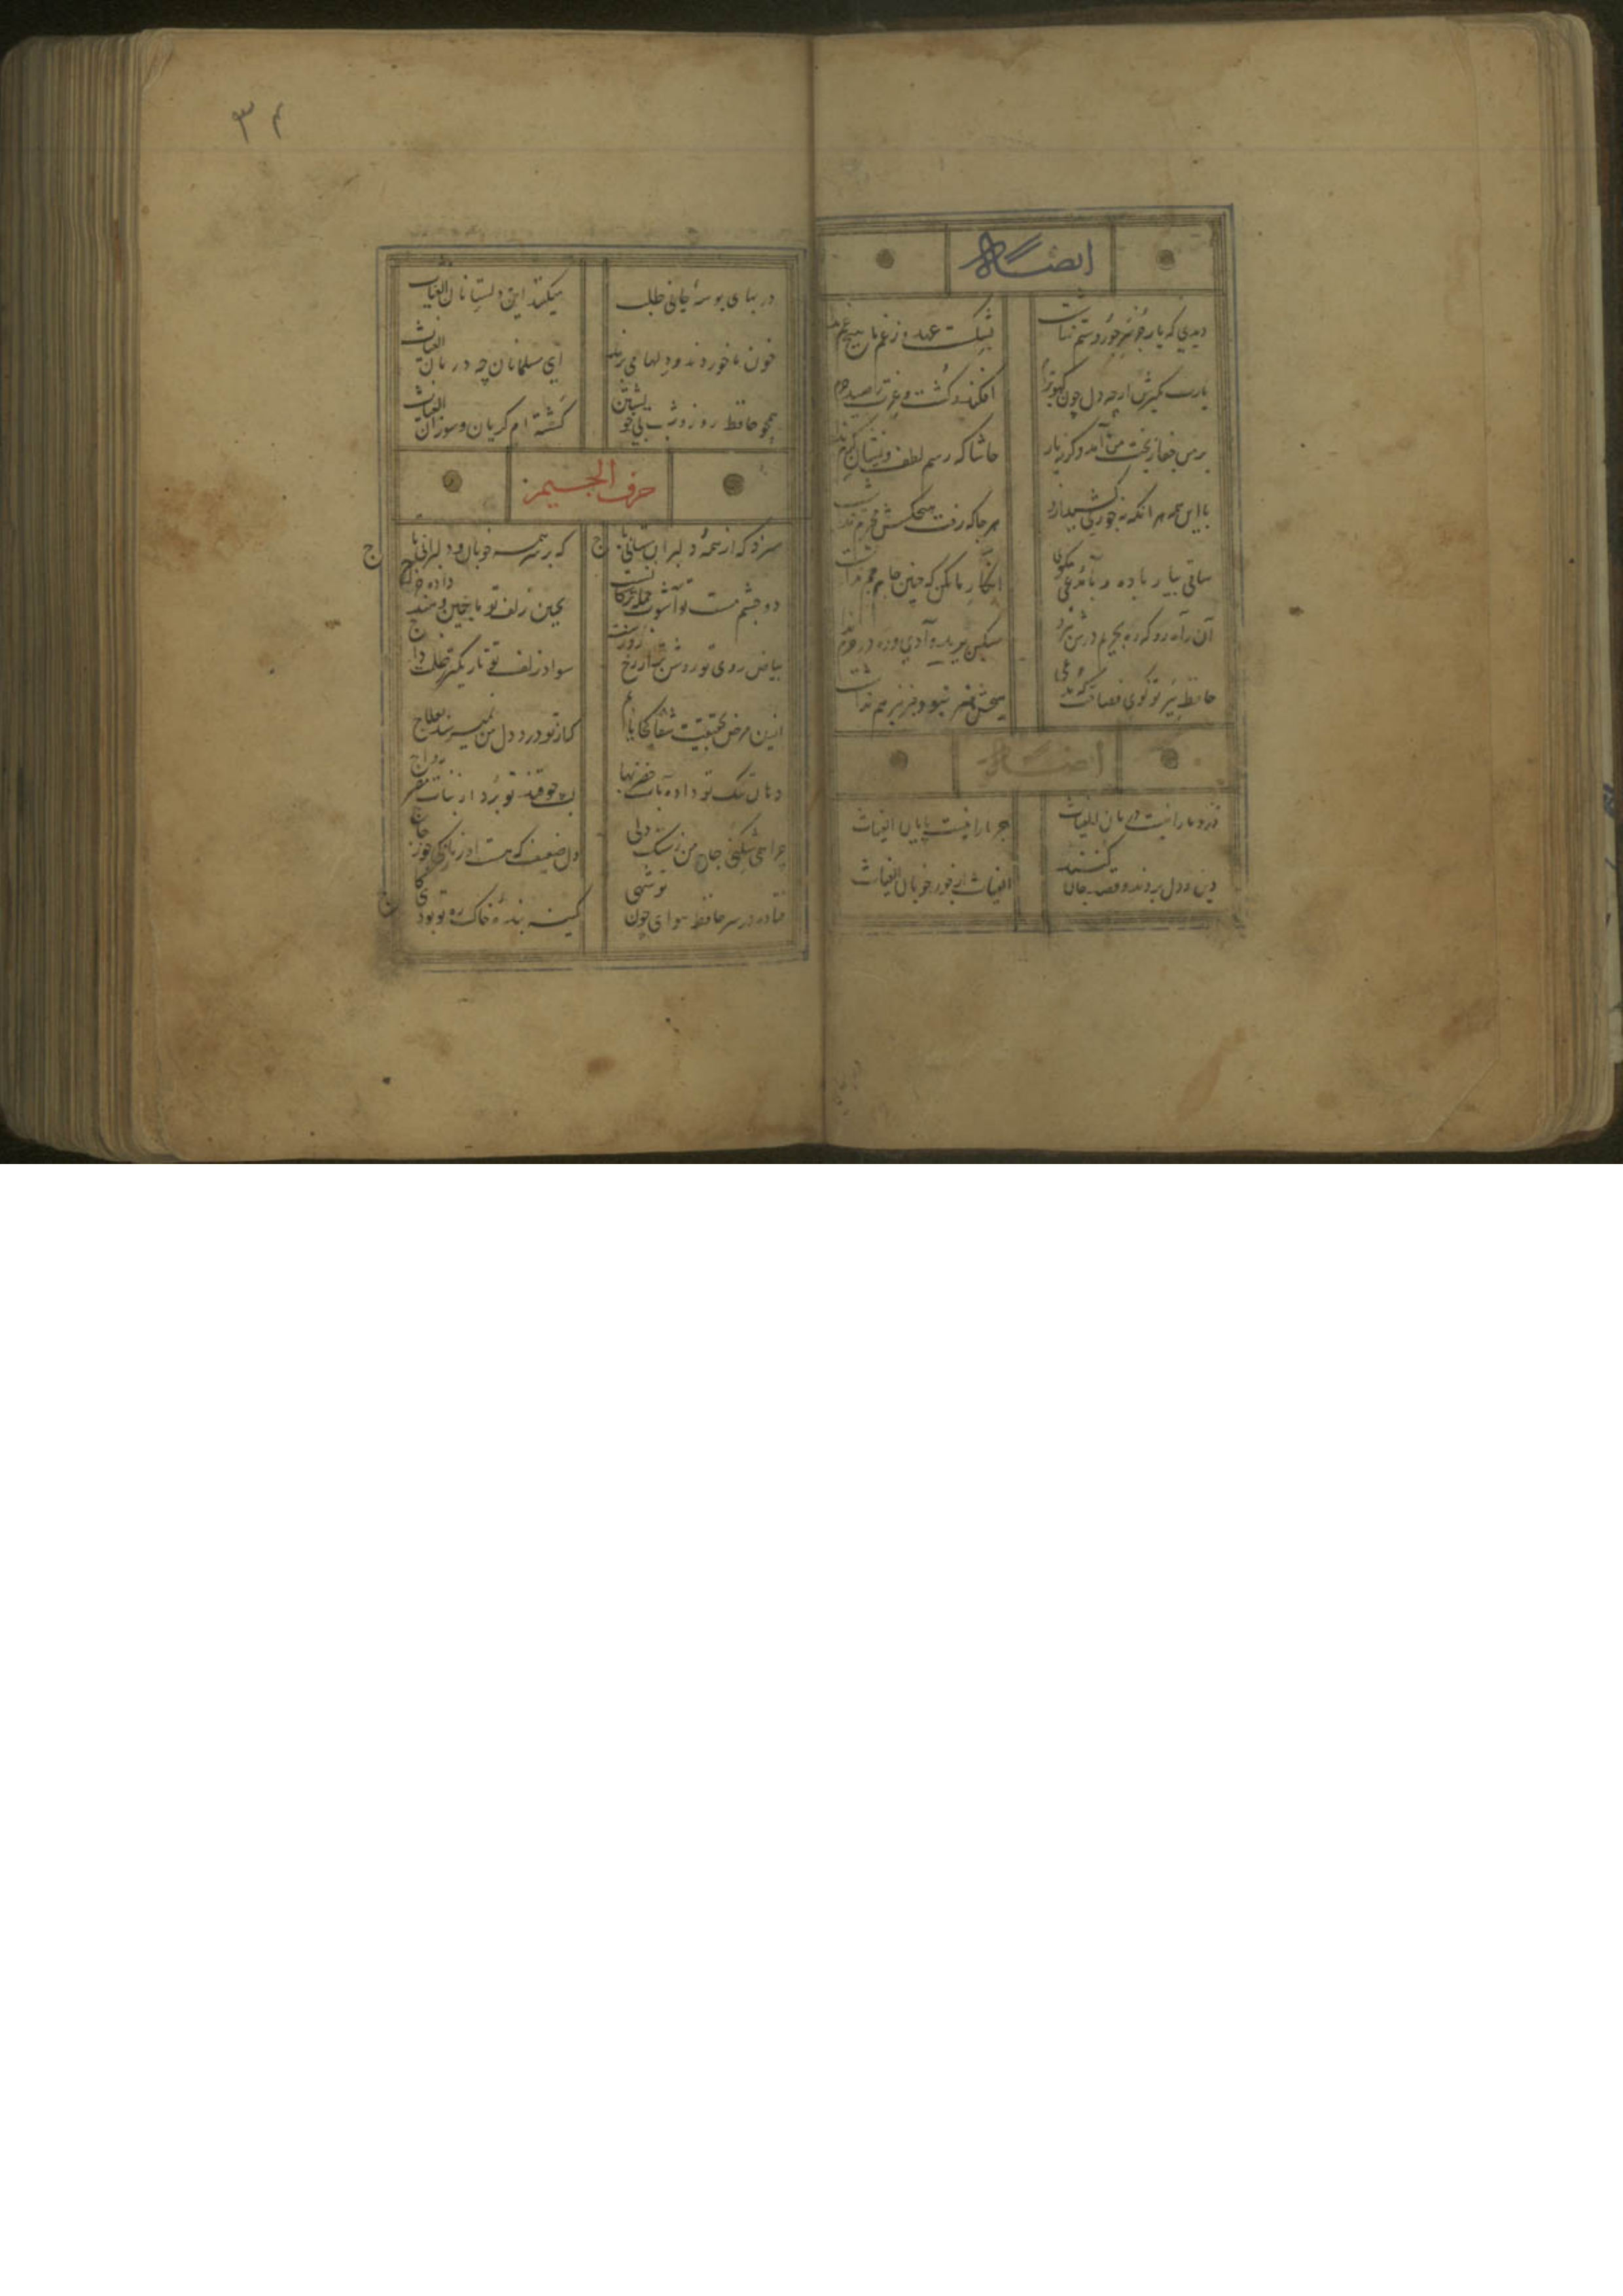 ایضاً له
دیدی که یار جز سر جور و ستم نداشت
بشکست عهد و زغم ما هیچ غم نداشت
یارب مگیرش ارچه دل چون کبوترم
افکند و کشت و عزت صید حرم نداشت
بر من جفا ز بخت من آمد وگرنه یار
حاشا که رسم لطف و نشان کرم نداشت
با این همه هر آنکه نه خواری کشید ازو
هر جا که رفت هیچکسش محترم نداشت
ساقی بیار باده و با مدعی بگوی
انکار ما مکن که چنین جام جم نداشت
آن راه رو که ره بحریم درش نبرد
مسکین برید وادی و ره در حرم نداشت
حافظ ببر تو گوی فصاحت که مدعی
هیچش هنر نبود و خبر نیز هم نداشت
ایضاً له
درد ما را نیست درمان الغیاث
هجر ما را نیست پایان الغیاث
دین و دل بردند و قصد جان کنند
الغیاث از جور خوبان الغیاث
۳۴
در بهای بوسهٔ جانی طلب
میکنند این دلستانان الغیاث
خون ما خوردند و دلها می برند
ای مسلمانان چه درمان الغیاث
همچو حافظ روز و شب بی خویشتن
گشته ام گریان و سوزان الغیاث
حرف الجیم
سزد که از همهٔ دلبران ستانی باج
که بر سر همه خوبان و دلبرانی تاج
دو چشم مست تو آشوب جمله ترکستان
بچین زلف تو ماچین و هند داده خراج
بیاض روی تو روشن تر از رخ روزست
سواد زلف تو تاریکتر ز ظلمت داج
ازین مرض بحقیقت شفا کجا یابم
کز تو درد دل من نمیرسد بعلاج
دهان تنگ تو داده بآب خضر بها
لب چو قند تو برد از نبات مصر رواج
چرا همی شکنی جان من ز سنگ دلی
دل ضعیف که هست او ز نازکی چو زجاج
فتاد در سر حافظ هوای چون تو شهی
کمینه بندهٔ خاک ره تو بودی کاج